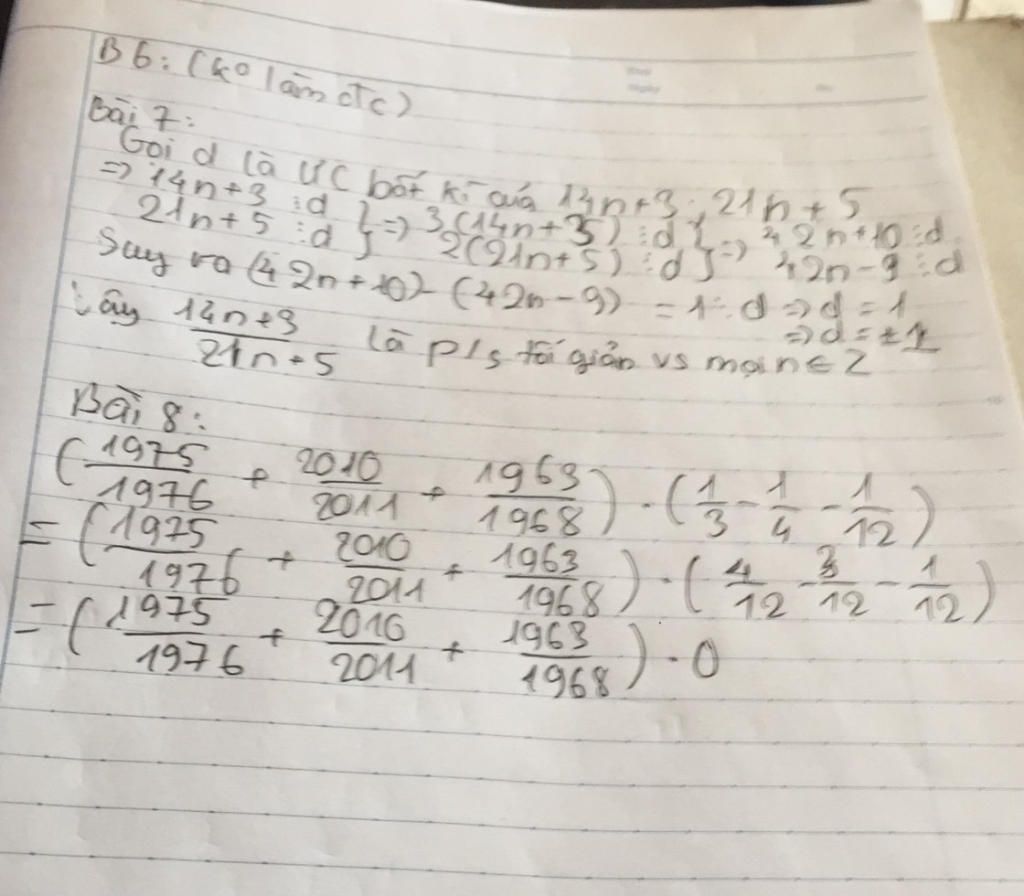 B6: (ko làm đc)
Bài 7:
Gọi d là ƯC bất kì của 14n+3; 21n+5
=> 14n+3 ⋮ d } => 3(14n+3) ⋮ d } => 42n+10 ⋮ d
21n+5 ⋮ d } 2(21n+5) ⋮ d } 42n-9 ⋮ d
Suy ra (42n+10) - (42n-9) = 1 ⋮ d => d = 1
=> d = ±1
Vậy 14n+3/21n+5 là p/s tối giản vs mọi n ∈ Z
Bài 8:
(1975/1976 + 2010/2011 + 1963/1968) . (1/3 - 1/4 - 1/12)
= (1975/1976 + 2010/2011 + 1963/1968) . (4/12 - 3/12 - 1/12)
= (1975/1976 + 2010/2011 + 1963/1968) . 0